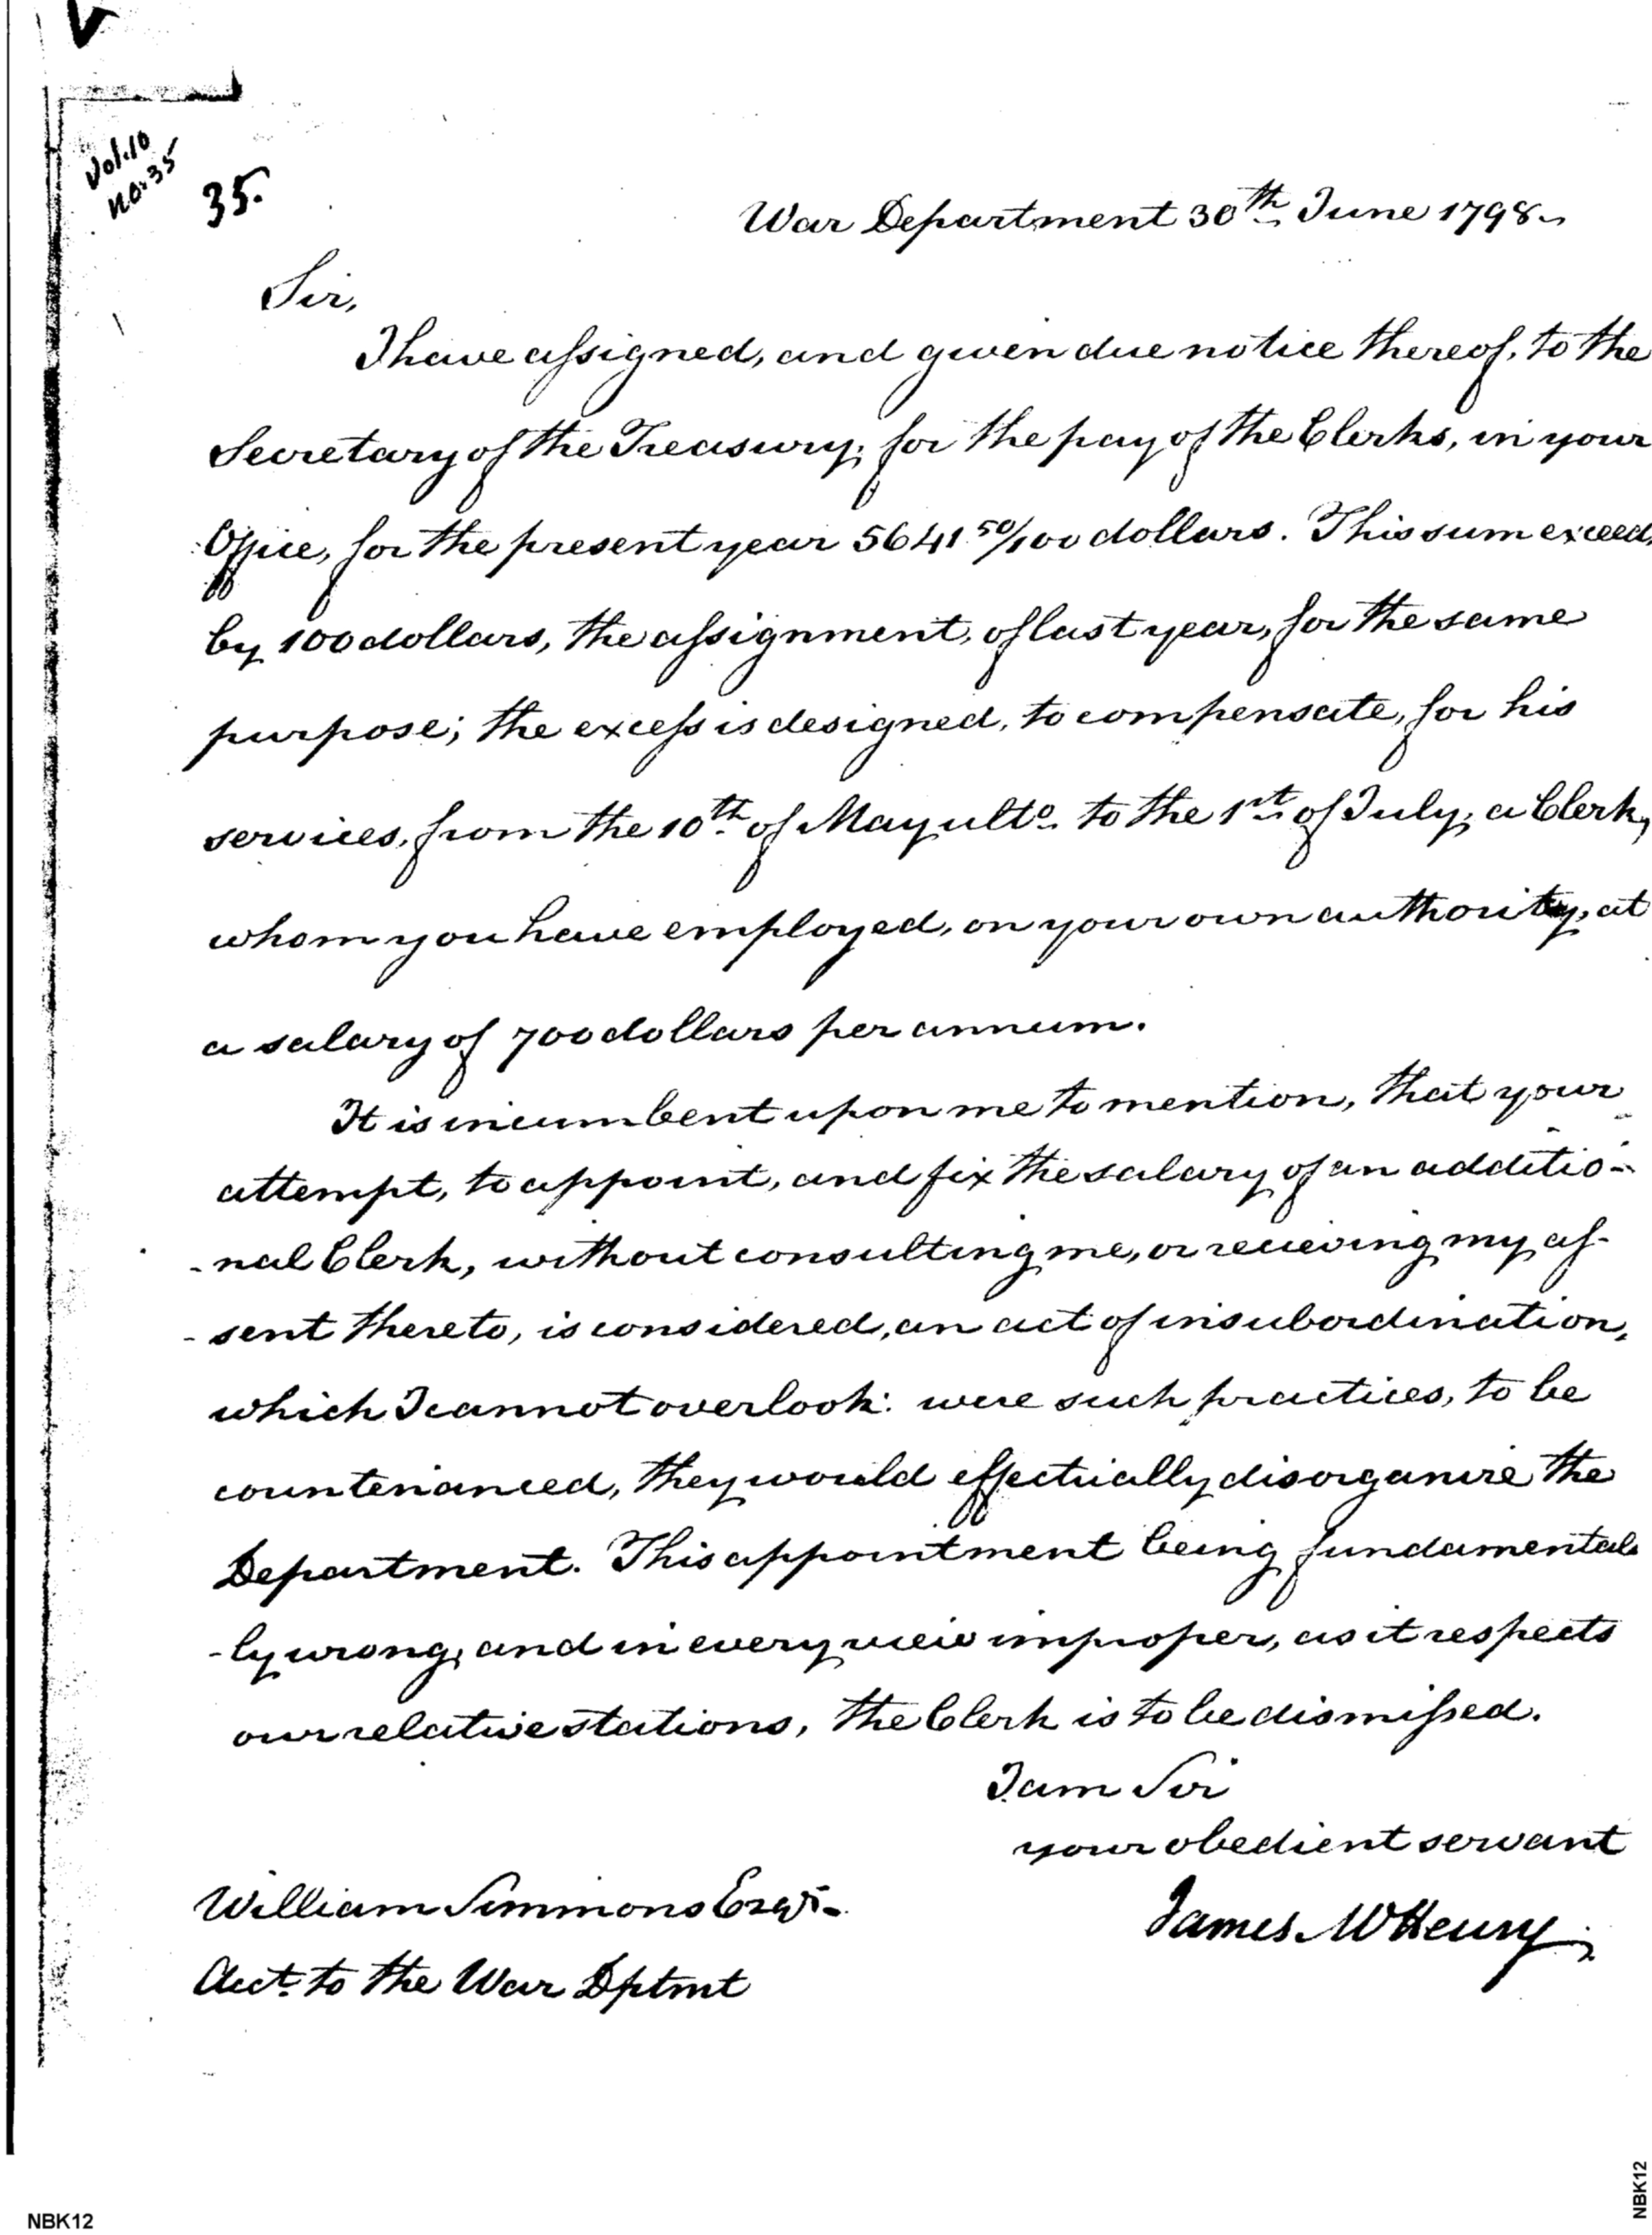 Vol. 10
No. 35
35.
War Department 30th June 1798
Sir,
I have assigned, and given due notice thereof, to the
Secretary of the Treasury; for the pay of the Clerks, in your
Office, for the present year 5641 50/100 dollars. This sum exceeds
by 100 dollars, the assignment, of last year, for the same
purpose; the excess is designed, to compensate, for his
services, from the 10th of May ulto. to the 1st of July; a Clerk,
whom you have employed, on your own authority, at
a salary of 700 dollars per annum.
It is incumbent upon me to mention, that your
attempt, to appoint, and fix the salary of an additio-
-nal Clerk, without consulting me, or receiving my as-
-sent thereto, is considered, an act of insubordination,
which I cannot overlook: were such practices, to be
countenanced, they would effectually disorganize the
Department. This appointment being fundamental-
-ly wrong, and in every view improper, as it respects
our relative stations, the Clerk is to be dismissed.
I am Sir
your obedient servant
James McHenry
William Simmons Esqr.
Acct. to the War Dptmt
NBK12
NBK12